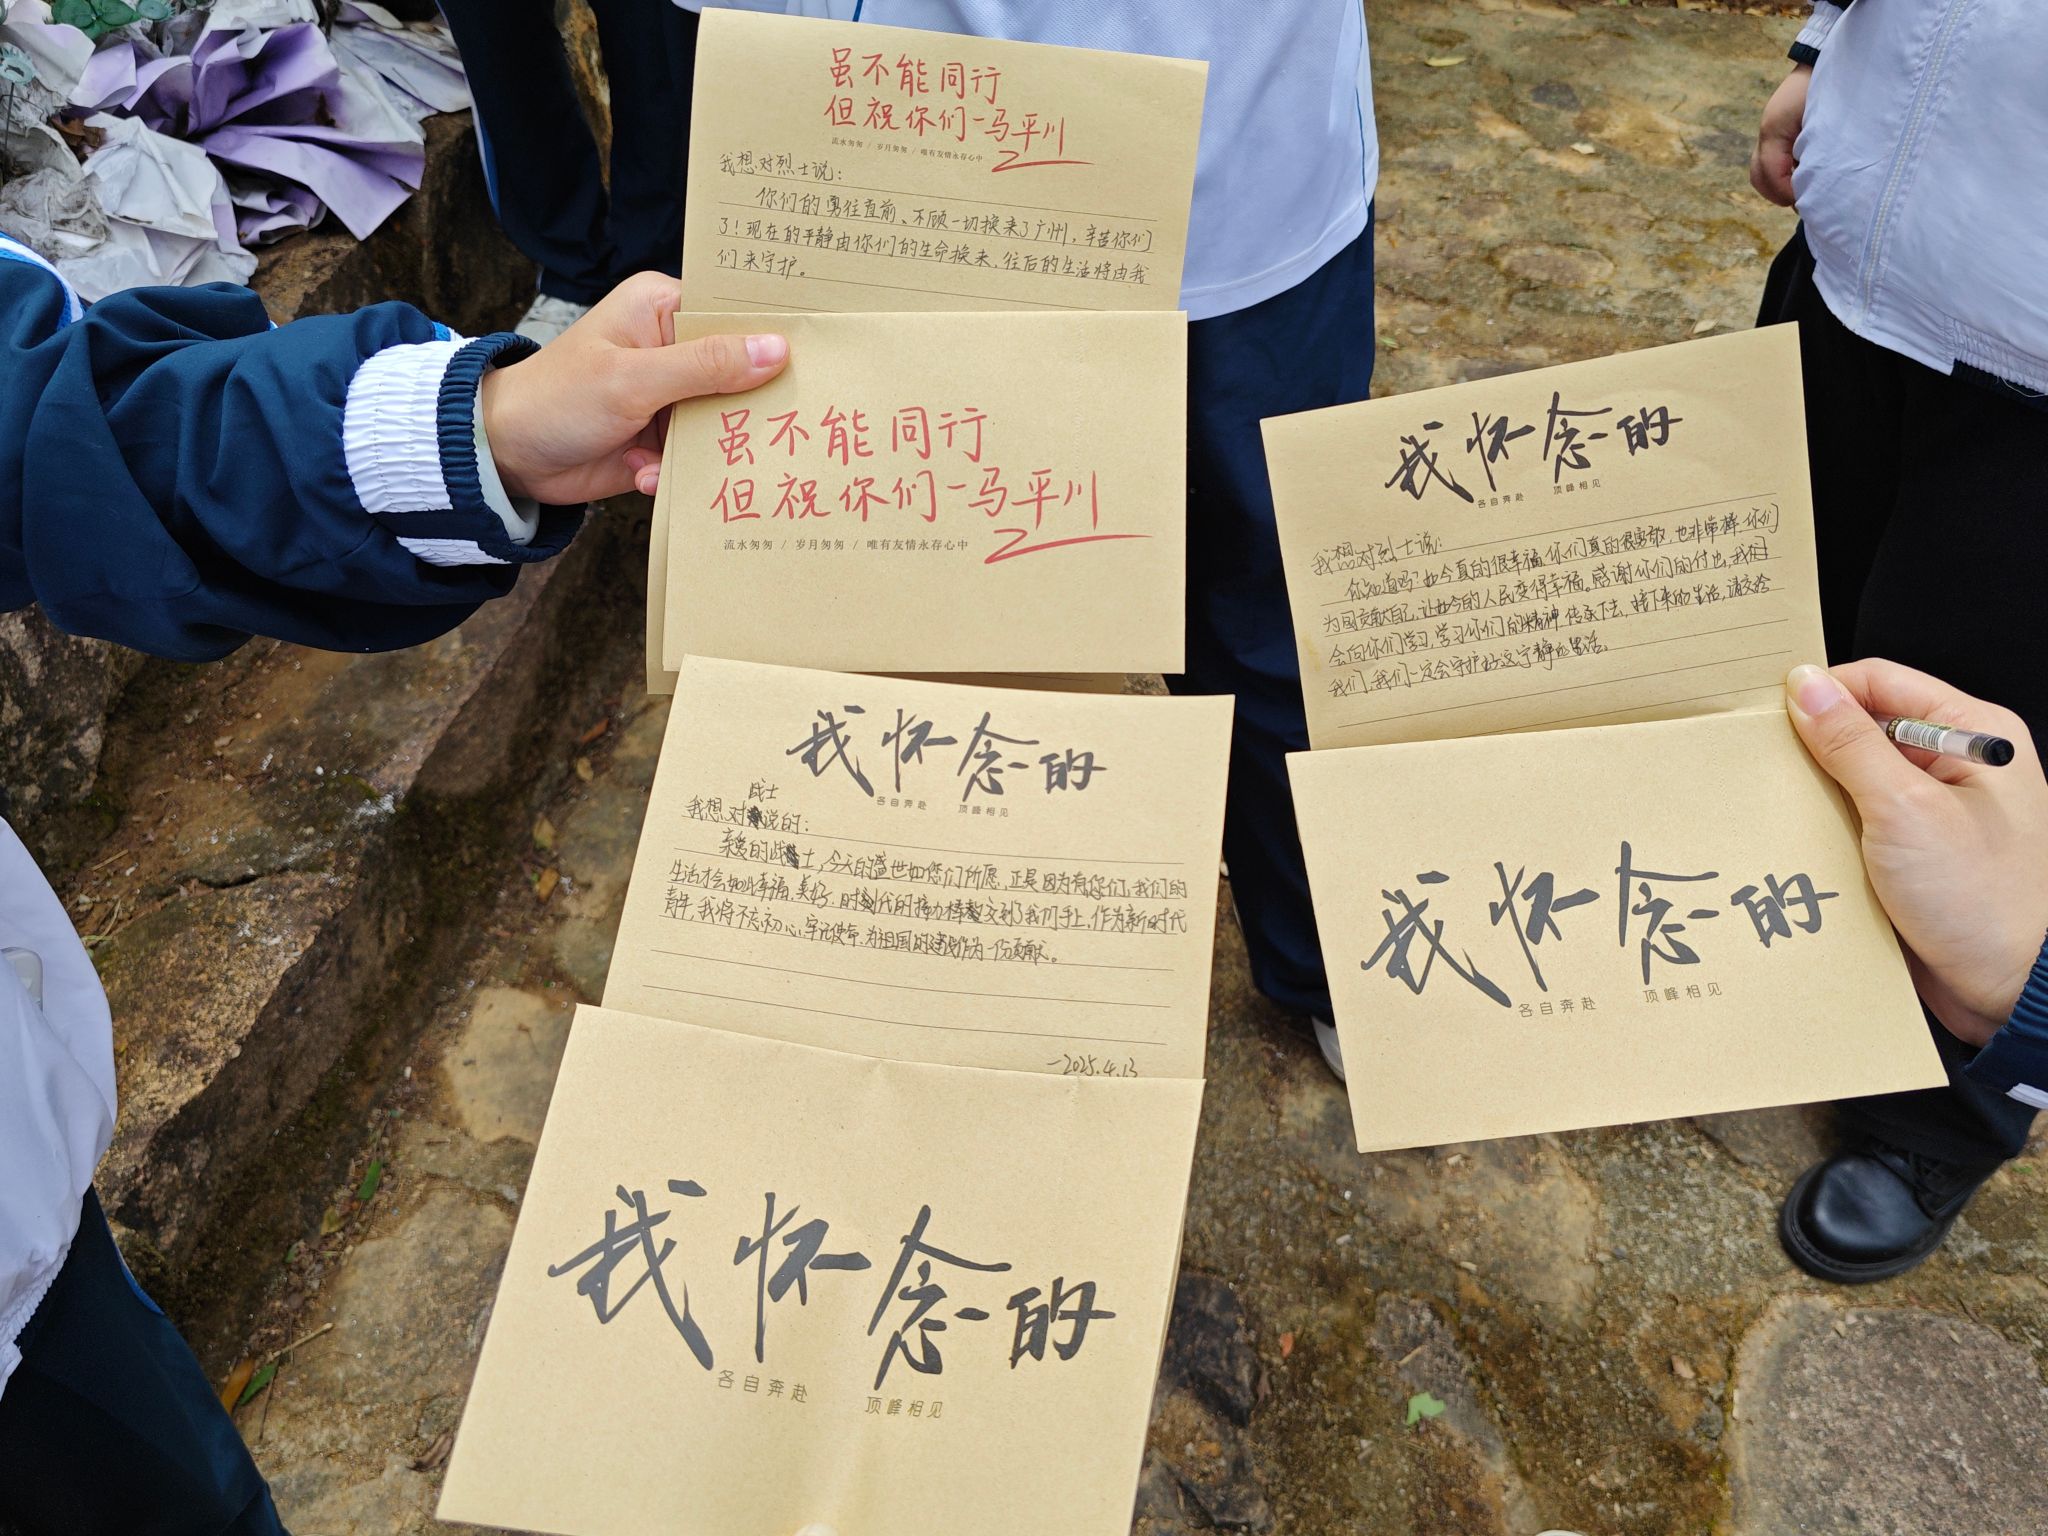 虽不能同行
但祝你们一马平川
流水匆匆 / 岁月匆匆 / 唯有友情永存心中
我想对烈士说：
你们的勇往直前、不顾一切换来了广州，辛苦你们
了！现在的平静由你们的生命换来，往后的生活将由我
们来守护。
虽不能同行
但祝你们一马平川
流水匆匆 / 岁月匆匆 / 唯有友情永存心中
我怀念的
各自奔赴 顶峰相见
我想对烈士说：
你知道吗？如今真的很幸福，你们真的很勇敢，也非常棒，你们
为国贡献自己，让如今的人民变得幸福。感谢你们的付出，我
会向你们学习，学习你们的精神，传承下去，接下来的生活，请交给
我们，我们一定会守护好这宁静的生活。
我怀念的
各自奔赴 顶峰相见
我怀念的
各自奔赴 顶峰相见
战士
我想对说的：
亲爱的战士，今天的盛世如您们所愿，正是因为有你们，我们的
生活才会如此幸福、美好，时代的接力棒交到了我们手上，作为新时代
青年，我将不忘初心，牢记使命，为祖国的建设作为一份贡献。
一2025.4.13
我怀念的
各自奔赴 顶峰相见